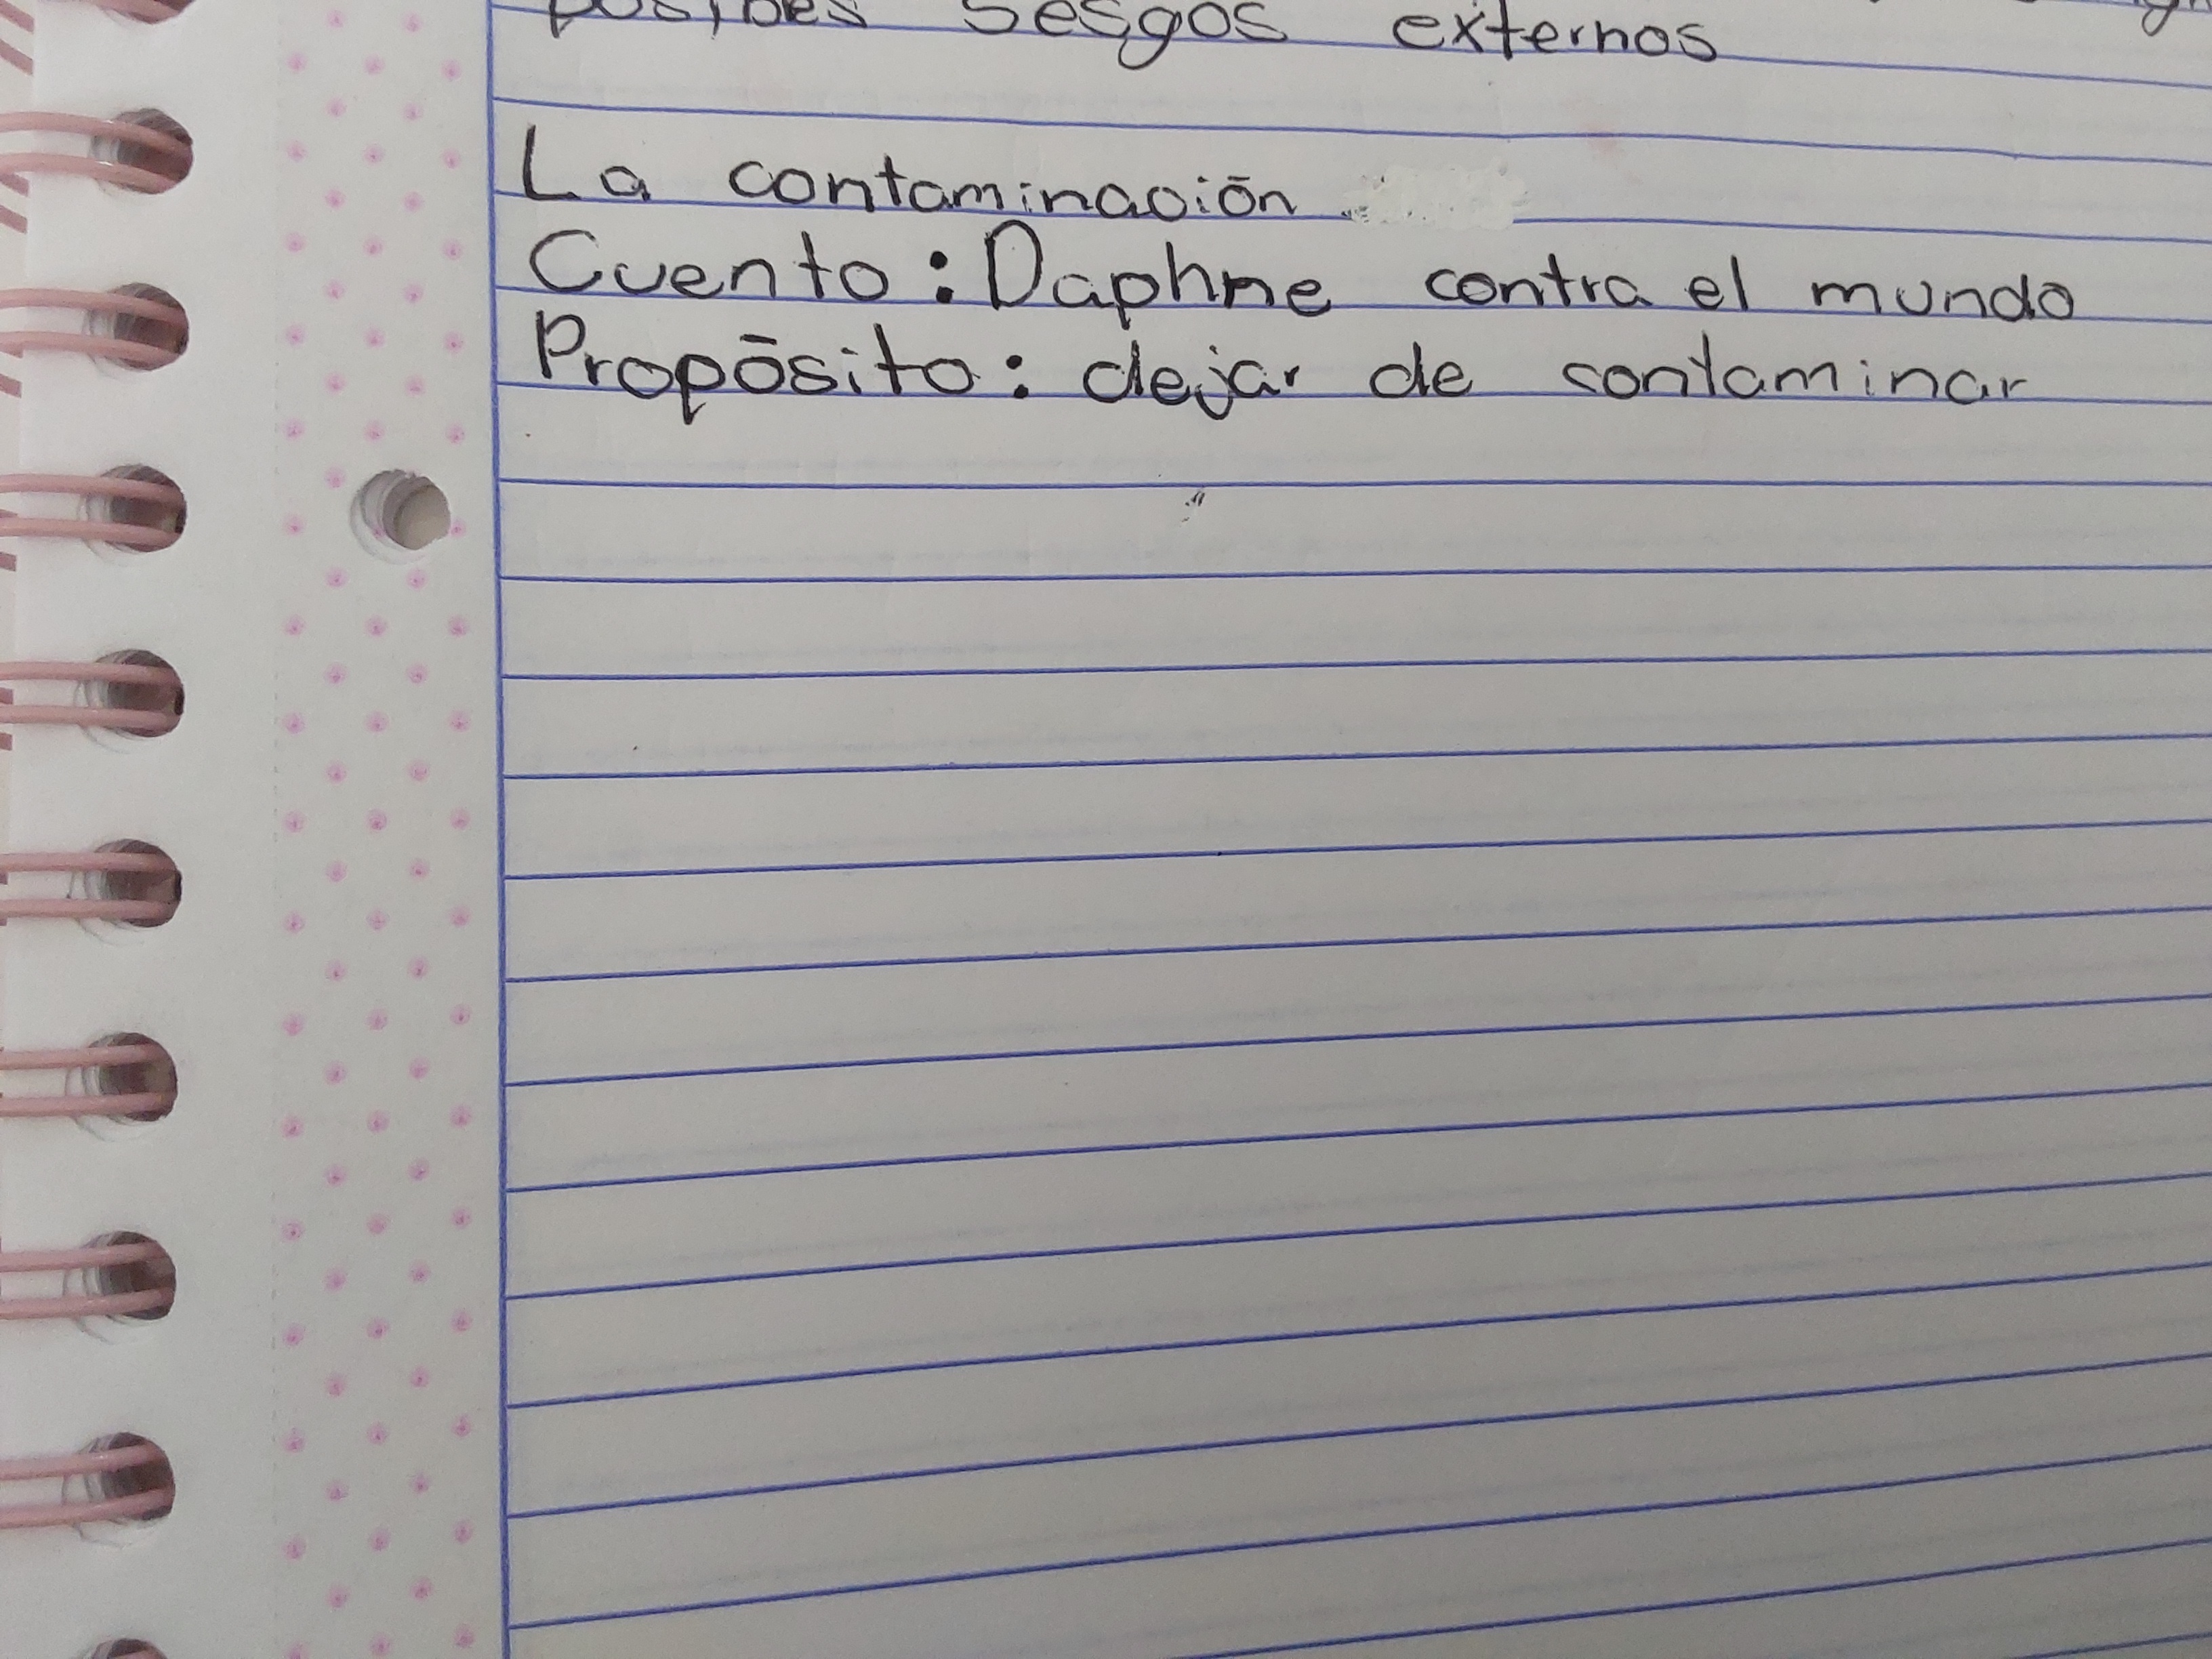 posibles sesgos externos
La contaminación
Cuento: Daphne contra el mundo
Propósito: dejar de contaminar